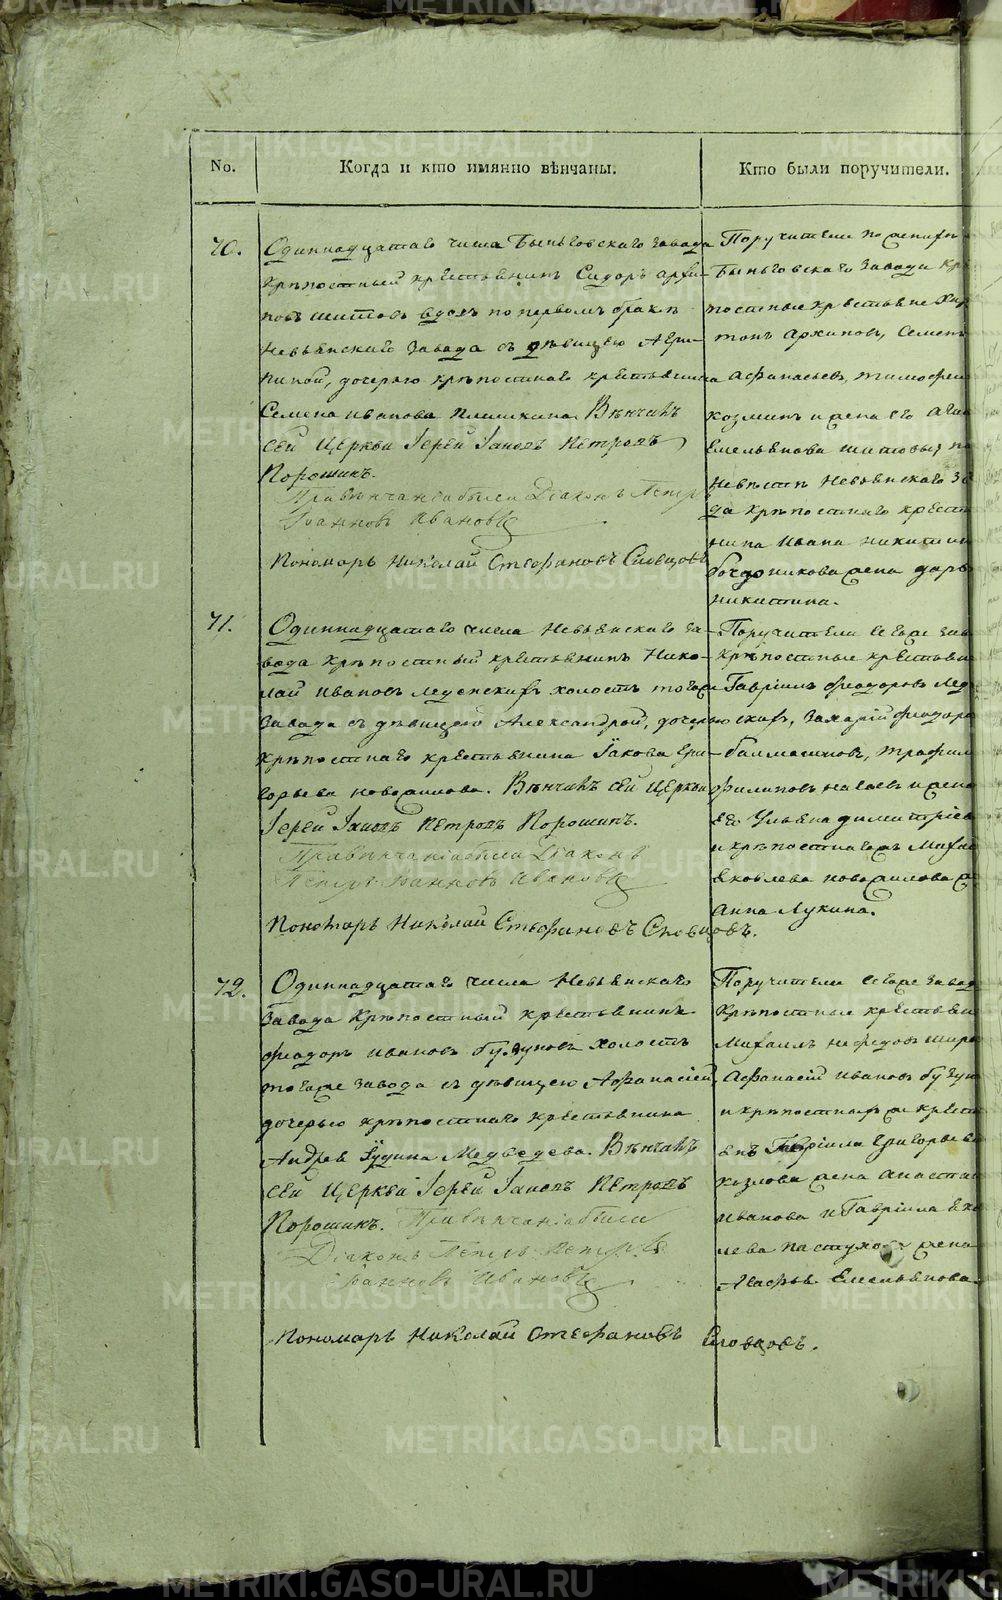 No.
Когда и кто имянно вѣнчаны.
Кто были поручители.
70.
Одиннадцатаго числа Быньговскаго завода
крѣпостный крестьянинъ Сидоръ Архи-
повъ Шитовъ вдовъ по первомъ бракѣ
Невьянскаго завода съ дѣвицею Агри-
пиной, дочерью крѣпостнаго крестьянина
Семена Иванова Плишкина. Вѣнчалъ
сей церкви Іерей Іаковъ Петровъ
Порошинъ.
При вѣнчаніи были Діаконъ Петръ
Іоанновъ Ивановъ
Пономарь Николай Стефановъ Словцовъ
Поручители по женихѣ
Быньговскаго завода крѣ
постные крестьяне Хар
тонъ Архиповъ, Семенъ
Афанасьевъ, Тимофей
Козминъ и жена его
Емельянова Шитовы, по
невѣстѣ Невьянскаго за
да крѣпостнаго крестья
нина Ивана Никитина
жена Дарья
Никитина.
71.
Одиннадцатаго числа Невьянскаго за-
вода крѣпостный крестьянинъ Нико-
лай Ивановъ холостъ тогоже
завода съ дѣвицею Александрой, дочерью
крѣпостнаго крестьянина Іакова Гри-
горьева Новожилова. Вѣнчалъ сей церкви
Іерей Іаковъ Петровъ Порошинъ.
При вѣнчаніи были Діаконъ
Петръ Іоанновъ Ивановъ
Пономарь Николай Стефановъ Словцовъ.
Поручители тогоже заво
крѣпостные крестьяне
Гавріилъ Феодоровъ
Захарій Феодоро
Балмашновъ, Трофим
Филиповъ и жена
его Ульяна Димитріева
и крѣпостнагожъ Миха
Яковлева Новожилова ж
Анна Лукина.
72.
Одиннадцатаго числа Невьянскаго
завода крѣпостный крестьянинъ
Феодоръ Ивановъ холостъ
тогоже завода съ дѣвицею Афанасіей,
дочерью крѣпостнаго крестьянина
Андрея Іудина Медведева. Вѣнчалъ
сей церкви Іерей Іаковъ Петровъ
Порошинъ. При вѣнчаніи были
Діаконъ Петръ
Іоанновъ Ивановъ
Пономарь Николай Стефановъ Словцовъ.
Поручители тогоже завод
крѣпостные крестьяне
Михаилъ Нефедовъ Шир
Афанасій Ивановъ
и крѣпостныхъ же крест
янъ Гавріила Григорьева
Козлова жена Анаста
Иванова и Гавріила Яко
лева Пастухова жена
Агафья Емельянова.
METRIKI.GASO-URAL.RU